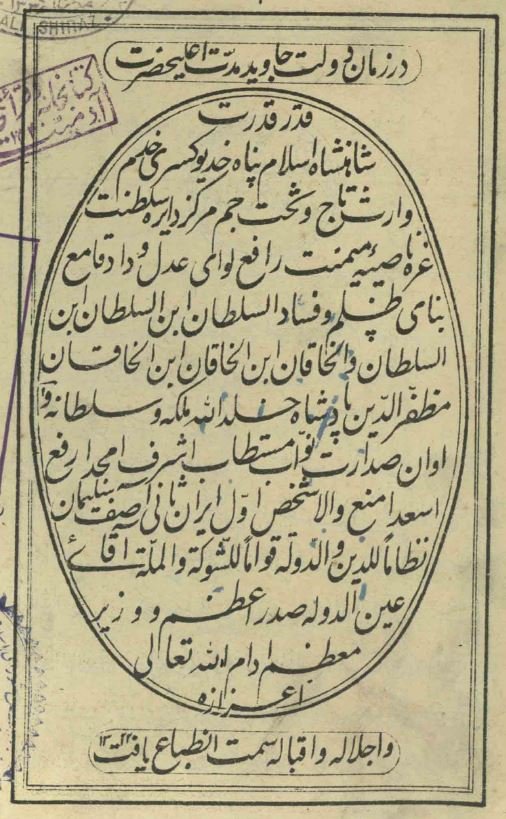 در زمان دولت جاوید مدت اعلیحضرت
قدر قدرت
شاهنشاه اسلام پناه خدیو کسری خدم
وارث تاج و تخت جم مرکز دایره سلطنت
غره ناصیه میمنت رافع لوای عدل و داد قامع
بنای ظلم و فساد السلطان ابن السلطان ابن
السلطان والخاقان ابن الخاقان ابن الخاقان
مظفر الدین پادشاه خلد الله ملکه و سلطانه و
اوان صدارت نواب مستطاب اشرف امجد ارفع
اسعد امنع والا شخص اول ایران ثانی آصف سلیمان
نظاماً للدین والدوله قواماً للشوکة والملة آقائے
عین الدوله صدراعظم و وزیر
معظم ادام الله تعالی
اعزازه
واجلاله واقباله سمت انطباع یافت ۱۳۲۲
SHIRAZ
کتابخانه